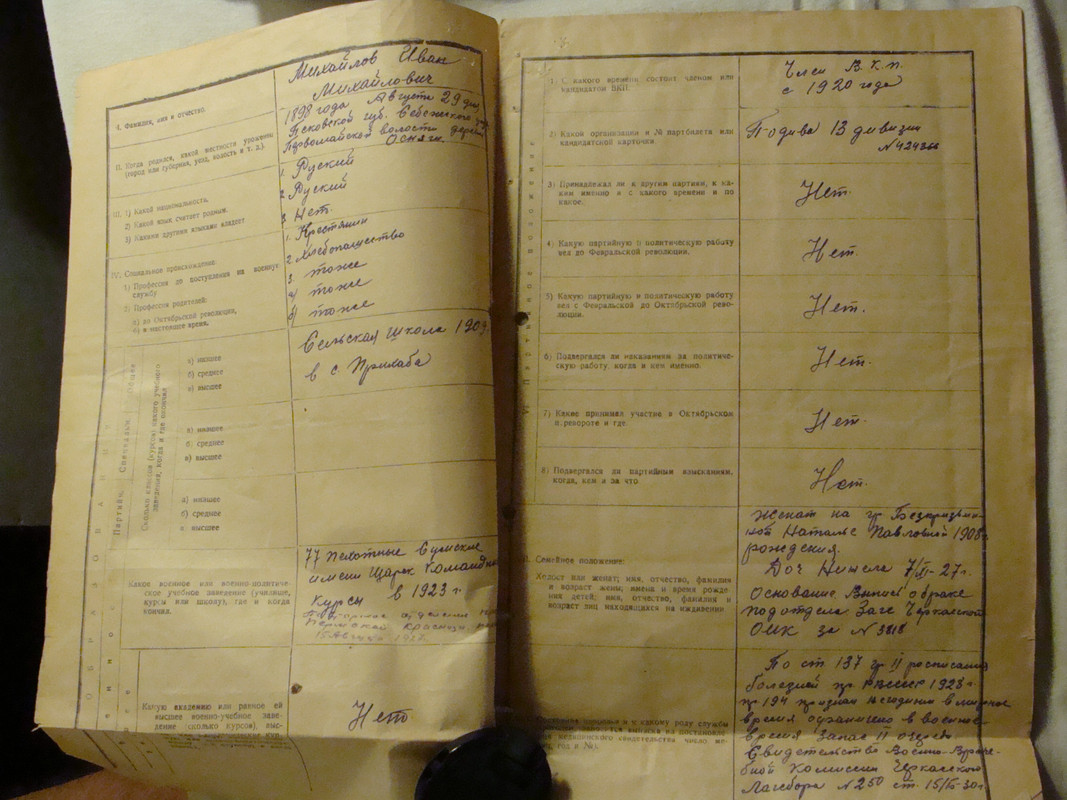 I. Фамилия, имя и отчество.
Михайлов Иван
Михайлович
II. Когда родился, какой местности уроженец
(город или губерния, уезд, волость и т. д.).
1898 года Августа 29 дня
Псковской губ. Себежского
Первомайской волости дерев
III. 1) Какой национальности.
2) Какой язык считает родным.
3) Какими другими языками владеет
1. Руский
2. Руский
3. Нет.
IV. Социальное происхождение
1) Профессия до поступления на военную
службу
2) Профессия родителей:
а) до Октябрьской революции,
б) в настоящее время.
1. Крестянин
2 Хлебопашество
3 тоже
а) тоже
б) тоже
ОБРАЗОВАНИ
Партийн. Специальн. Общее
Сколько классов (курсов) какого учебного
заведения, когда и где окончил
а) низшее
б) среднее
в) высшее
Сельская школа 1909
в с Прихаба
а) низшее
б) среднее
в) высшее
а) низшее
б) среднее
в) высшее
Какое военное или военно-политиче-
ское учебное заведение (училище,
курсы или школу), где и когда
кончил.
77 пехотные Сумские
имени Щорса Командн
Курсы в 1923 г.
Какую академию или равное ей
высшее военно-учебное заве-
дение (сколько курсов),
Нето
1) С какого времени состоит членом или
кандидатом ВКП.
Член В.К.П.
с 1920 года
2) Какой организации и № партбилета или
кандидатской карточки.
Подива 13 дивизии
3) Принадлежал ли к другим партиям, к ка-
ким именно и с какого времени и по
какое.
Нет.
4) Какую партийную и политическую работу
вел до Февральской революции.
Нет.
5) Какую партийную и политическую работу
вел с Февральской до Октябрьской рево-
люции.
Нет.
6) Подвергался ли наказаниям за политиче-
скую работу, когда и кем именно.
Нет.
7) Какие принимал участия в Октябрьском
перевороте и где.
Нет.
8) Подвергался ли партийным взысканиям,
когда, кем и за что
Нет.
VI. Партийное положение
Семейное положение:
Холост или женат; имя, отчество, фамилия
и возраст жены; имена и время рожде-
ния детей; имя, отчество, фамилия и
возраст лиц находящихся на иждивении
женат на гр
ной Наталье Павловной 1908 г
рождения.
Доч Нинела
Основание Выпись о браке
подотдела Загс Черкасской
ОИК за № 3818
По ст 137 гр II росписания
болезней пр РВССР 1928 г.
пр 194 признан негодным в мирное
время ограничено в военное
время Запас II очереди
Свидетельство Военно-Враче-
бной Комиссии Черкасского
Лагсбора № 250 от 15/